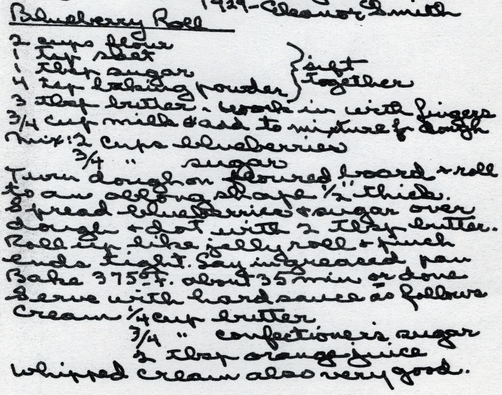 1929-Eleanor Smith
Blueberry Roll
2 cups flour
1 tsp salt
1 tbsp sugar
4 tsp baking powder } sift together
3 tbsp butter - work in with fingers
3/4 cup milk & add to mixture for dough
Mix: 2 cups blueberries
3/4 " sugar
Turn dough on floured board & roll
to an oblong shape 1/2" thick.
Spread blueberries & sugar over
dough & dot with 2 tbsp butter.
Roll up like jelly roll & pinch
ends tight. Lay in greased pan
Bake 375° F. about 35 min or done
Serve with hard sauce as follows
Cream 1/4 cup butter
3/4 " confectioner's sugar
2 tbsp orange juice
Whipped cream also very good.